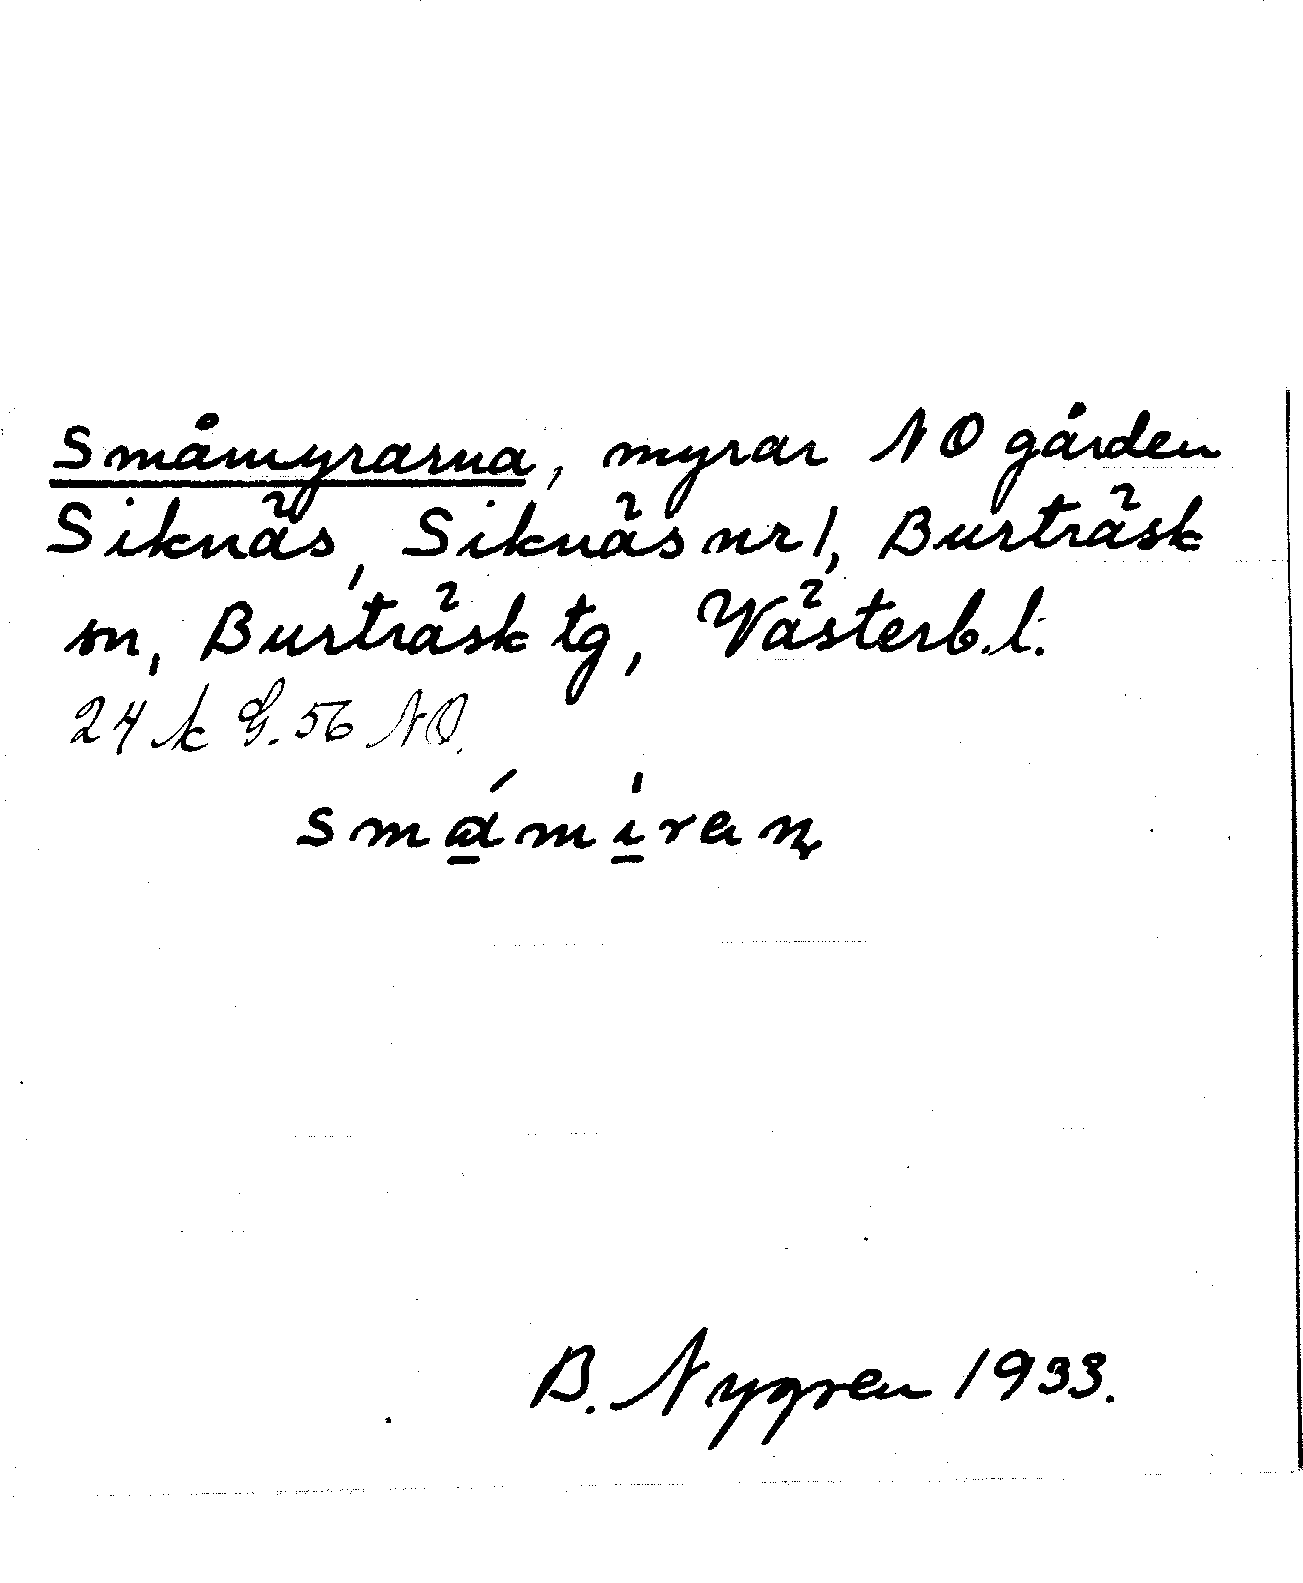 Småmyrarna, myrar NO gården
Siknäs, Siknäs nr 1, Burträsk
sn, Burträsk tg, Västerb. l.
24 k G. 56 NO.
B. Nygren 1933.